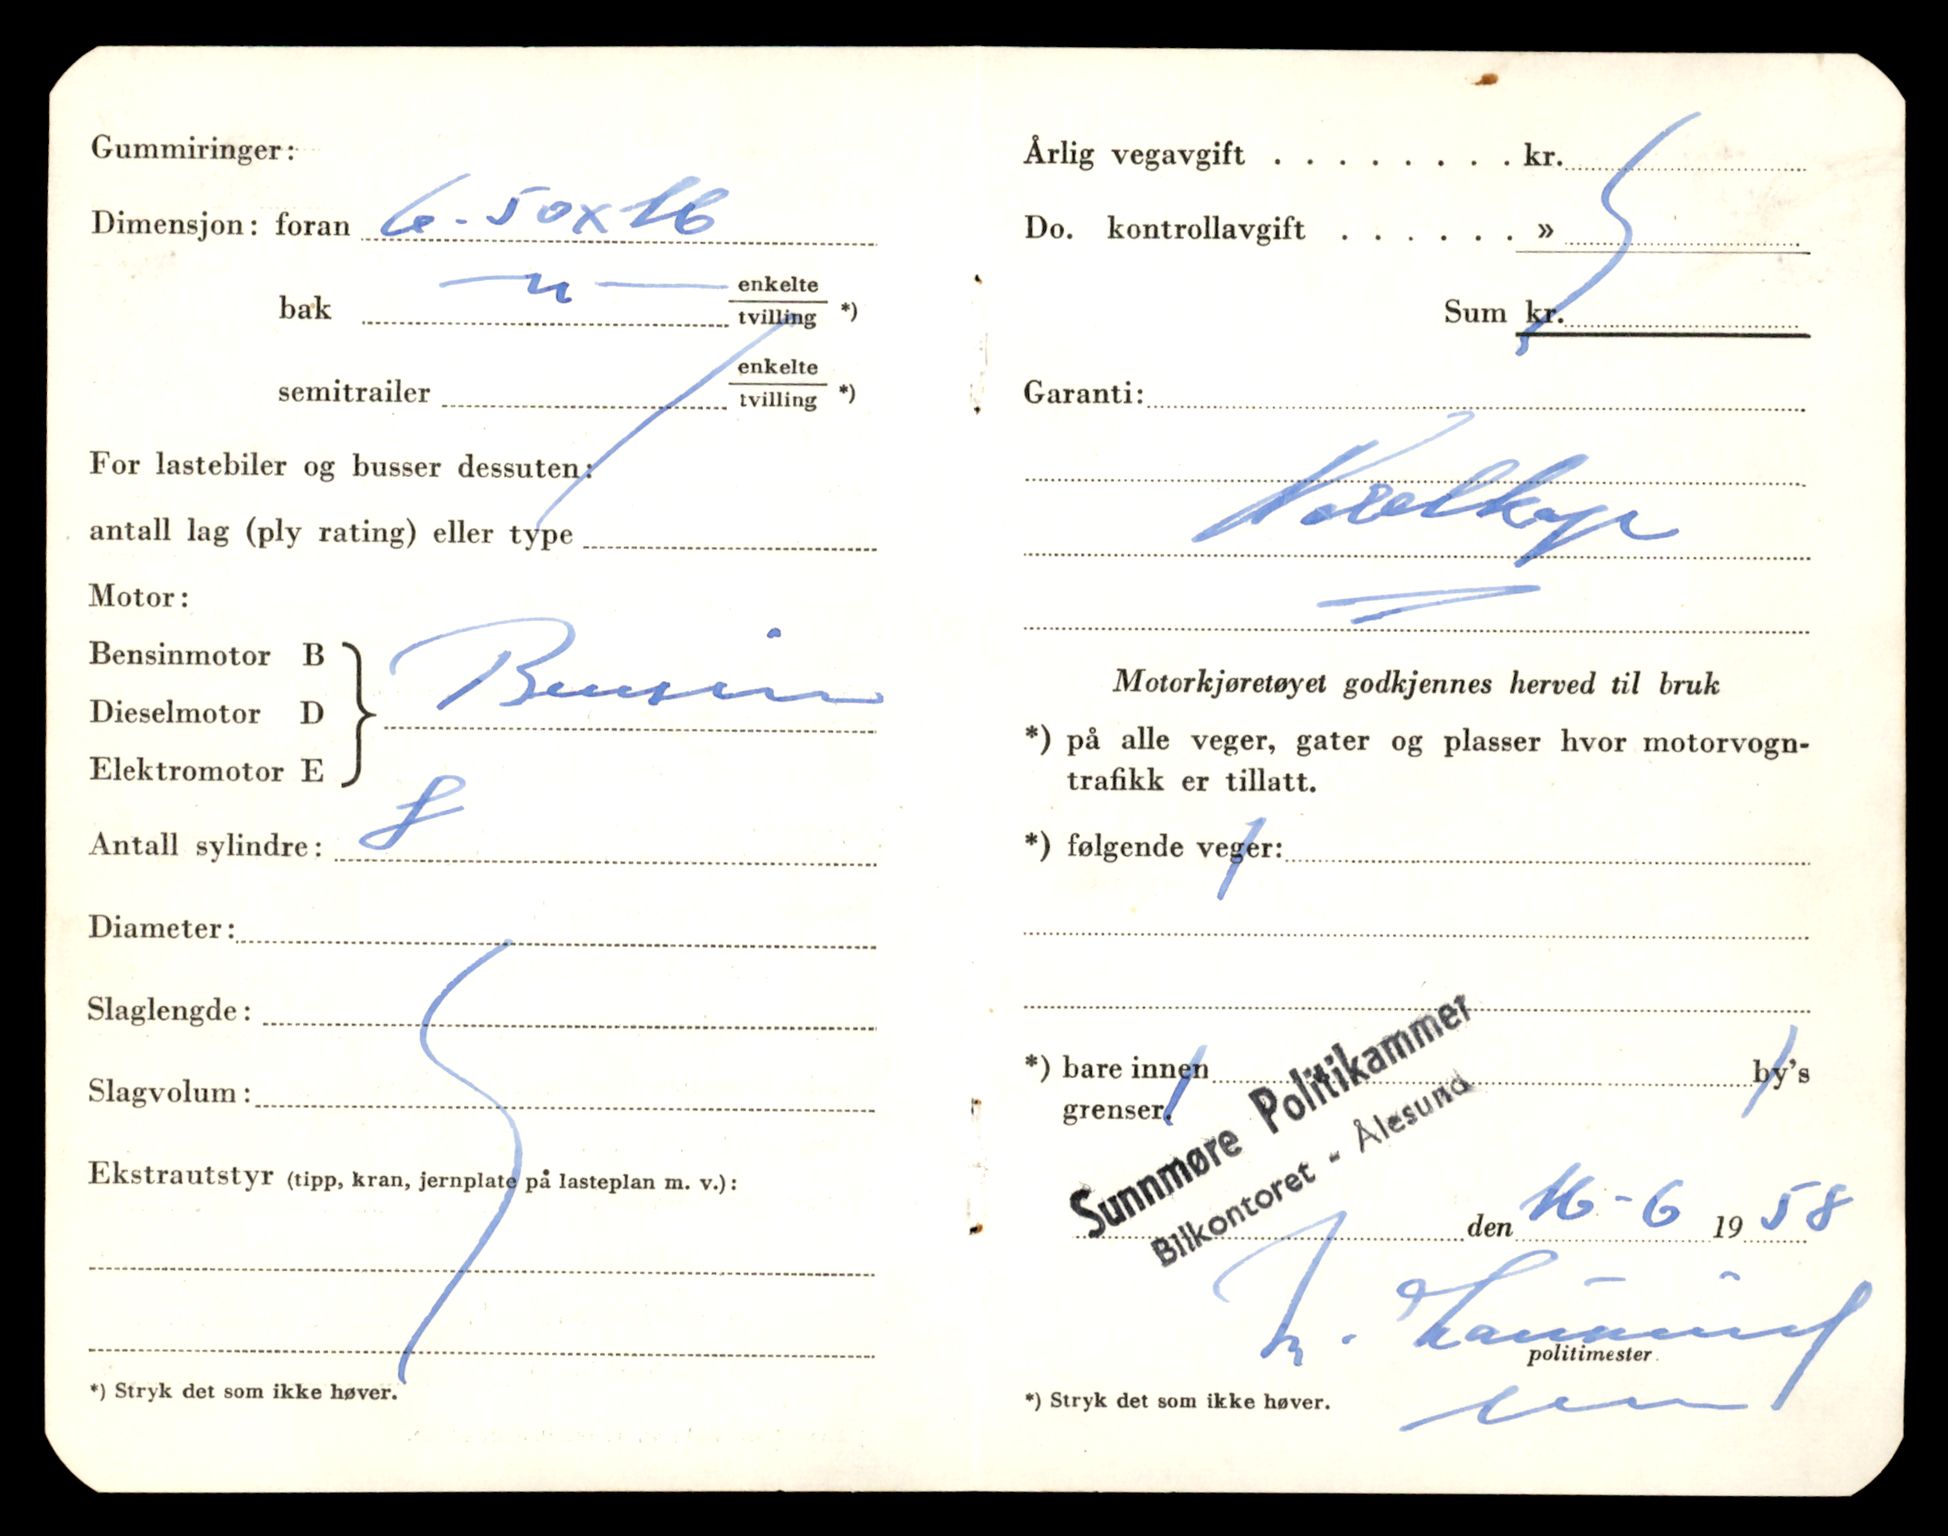 Gummiringer:
Dimensjon: foran 6-50x16
bak — " — enkelte
tvilling *)
semitrailer enkelte
tvilling *)
For lastebiler og busser dessuten:
antall lag (ply rating) eller type
Motor:
Bensinmotor B
Bensin
Dieselmotor D
Elektromotor E
Antall sylindre: 8
Diameter:
Slaglengde:
Slagvolum:
Ekstrautstyr (tipp, kran, jernplate på lasteplan m. v.):
*) Stryk det som ikke høver.
Årlig vegavgift . . . . . . . . kr.
Do. kontrollavgift . . . . . . »
Sum kr.
Garanti:
Motorkjøretøyet godkjennes herved til bruk
*) på alle veger, gater og plasser hvor motorvogn-
trafikk er tillatt.
*) følgende veger:
*) bare innen by's
grenser.
Sunnmøre Politikammer
Bilkontoret - Ålesund
den 16-6 1958
politimester.
*) Stryk det som ikke høver.